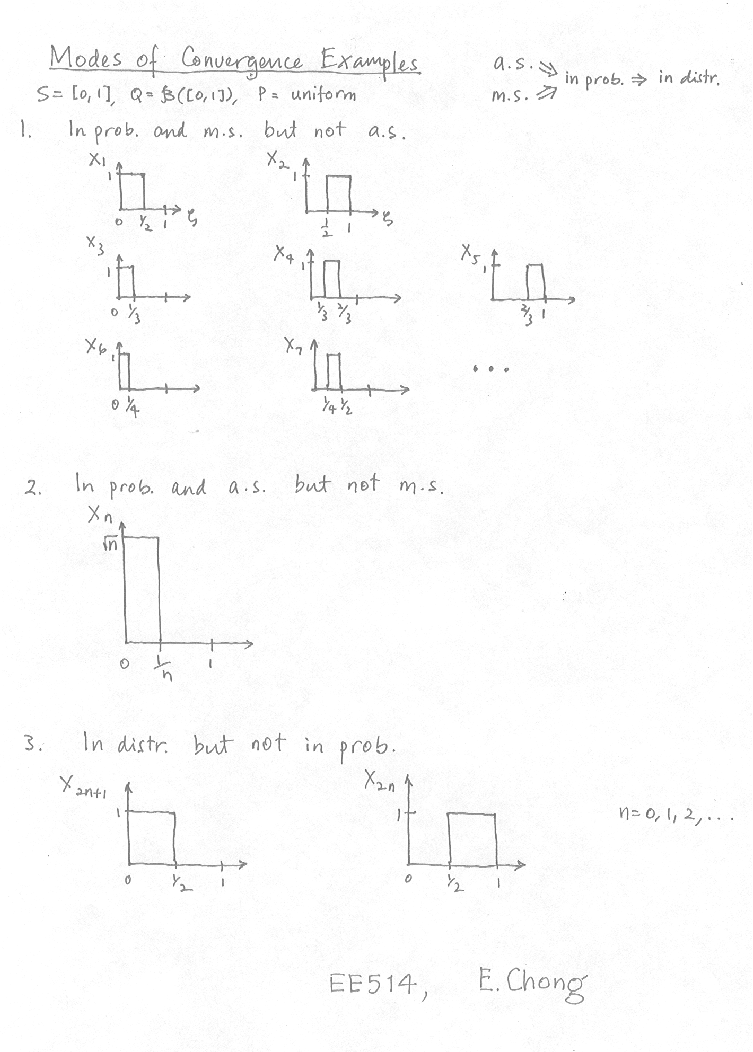 Modes of Convergence Examples
a.s. ⇒
in prob. ⇒ in distr.
m.s. ⇒
S = [0, 1], Q = B([0, 1]), P = uniform
1. In prob. and m.s. but not a.s.
X1 1 0 1/2 1 ζ
X2 1 1/2 1 ζ
X3 1 0 1/3
X4 1 1/3 2/3
X5 1 2/3 1
X6 1 0 1/4
X7 1 1/4 1/2
...
2. In prob. and a.s. but not m.s.
Xn
√n
0 1/n 1
3. In distr. but not in prob.
X2n+1 1 0 1/2 1
X2n 1 0 1/2 1
n = 0, 1, 2, ...
EE514, E. Chong